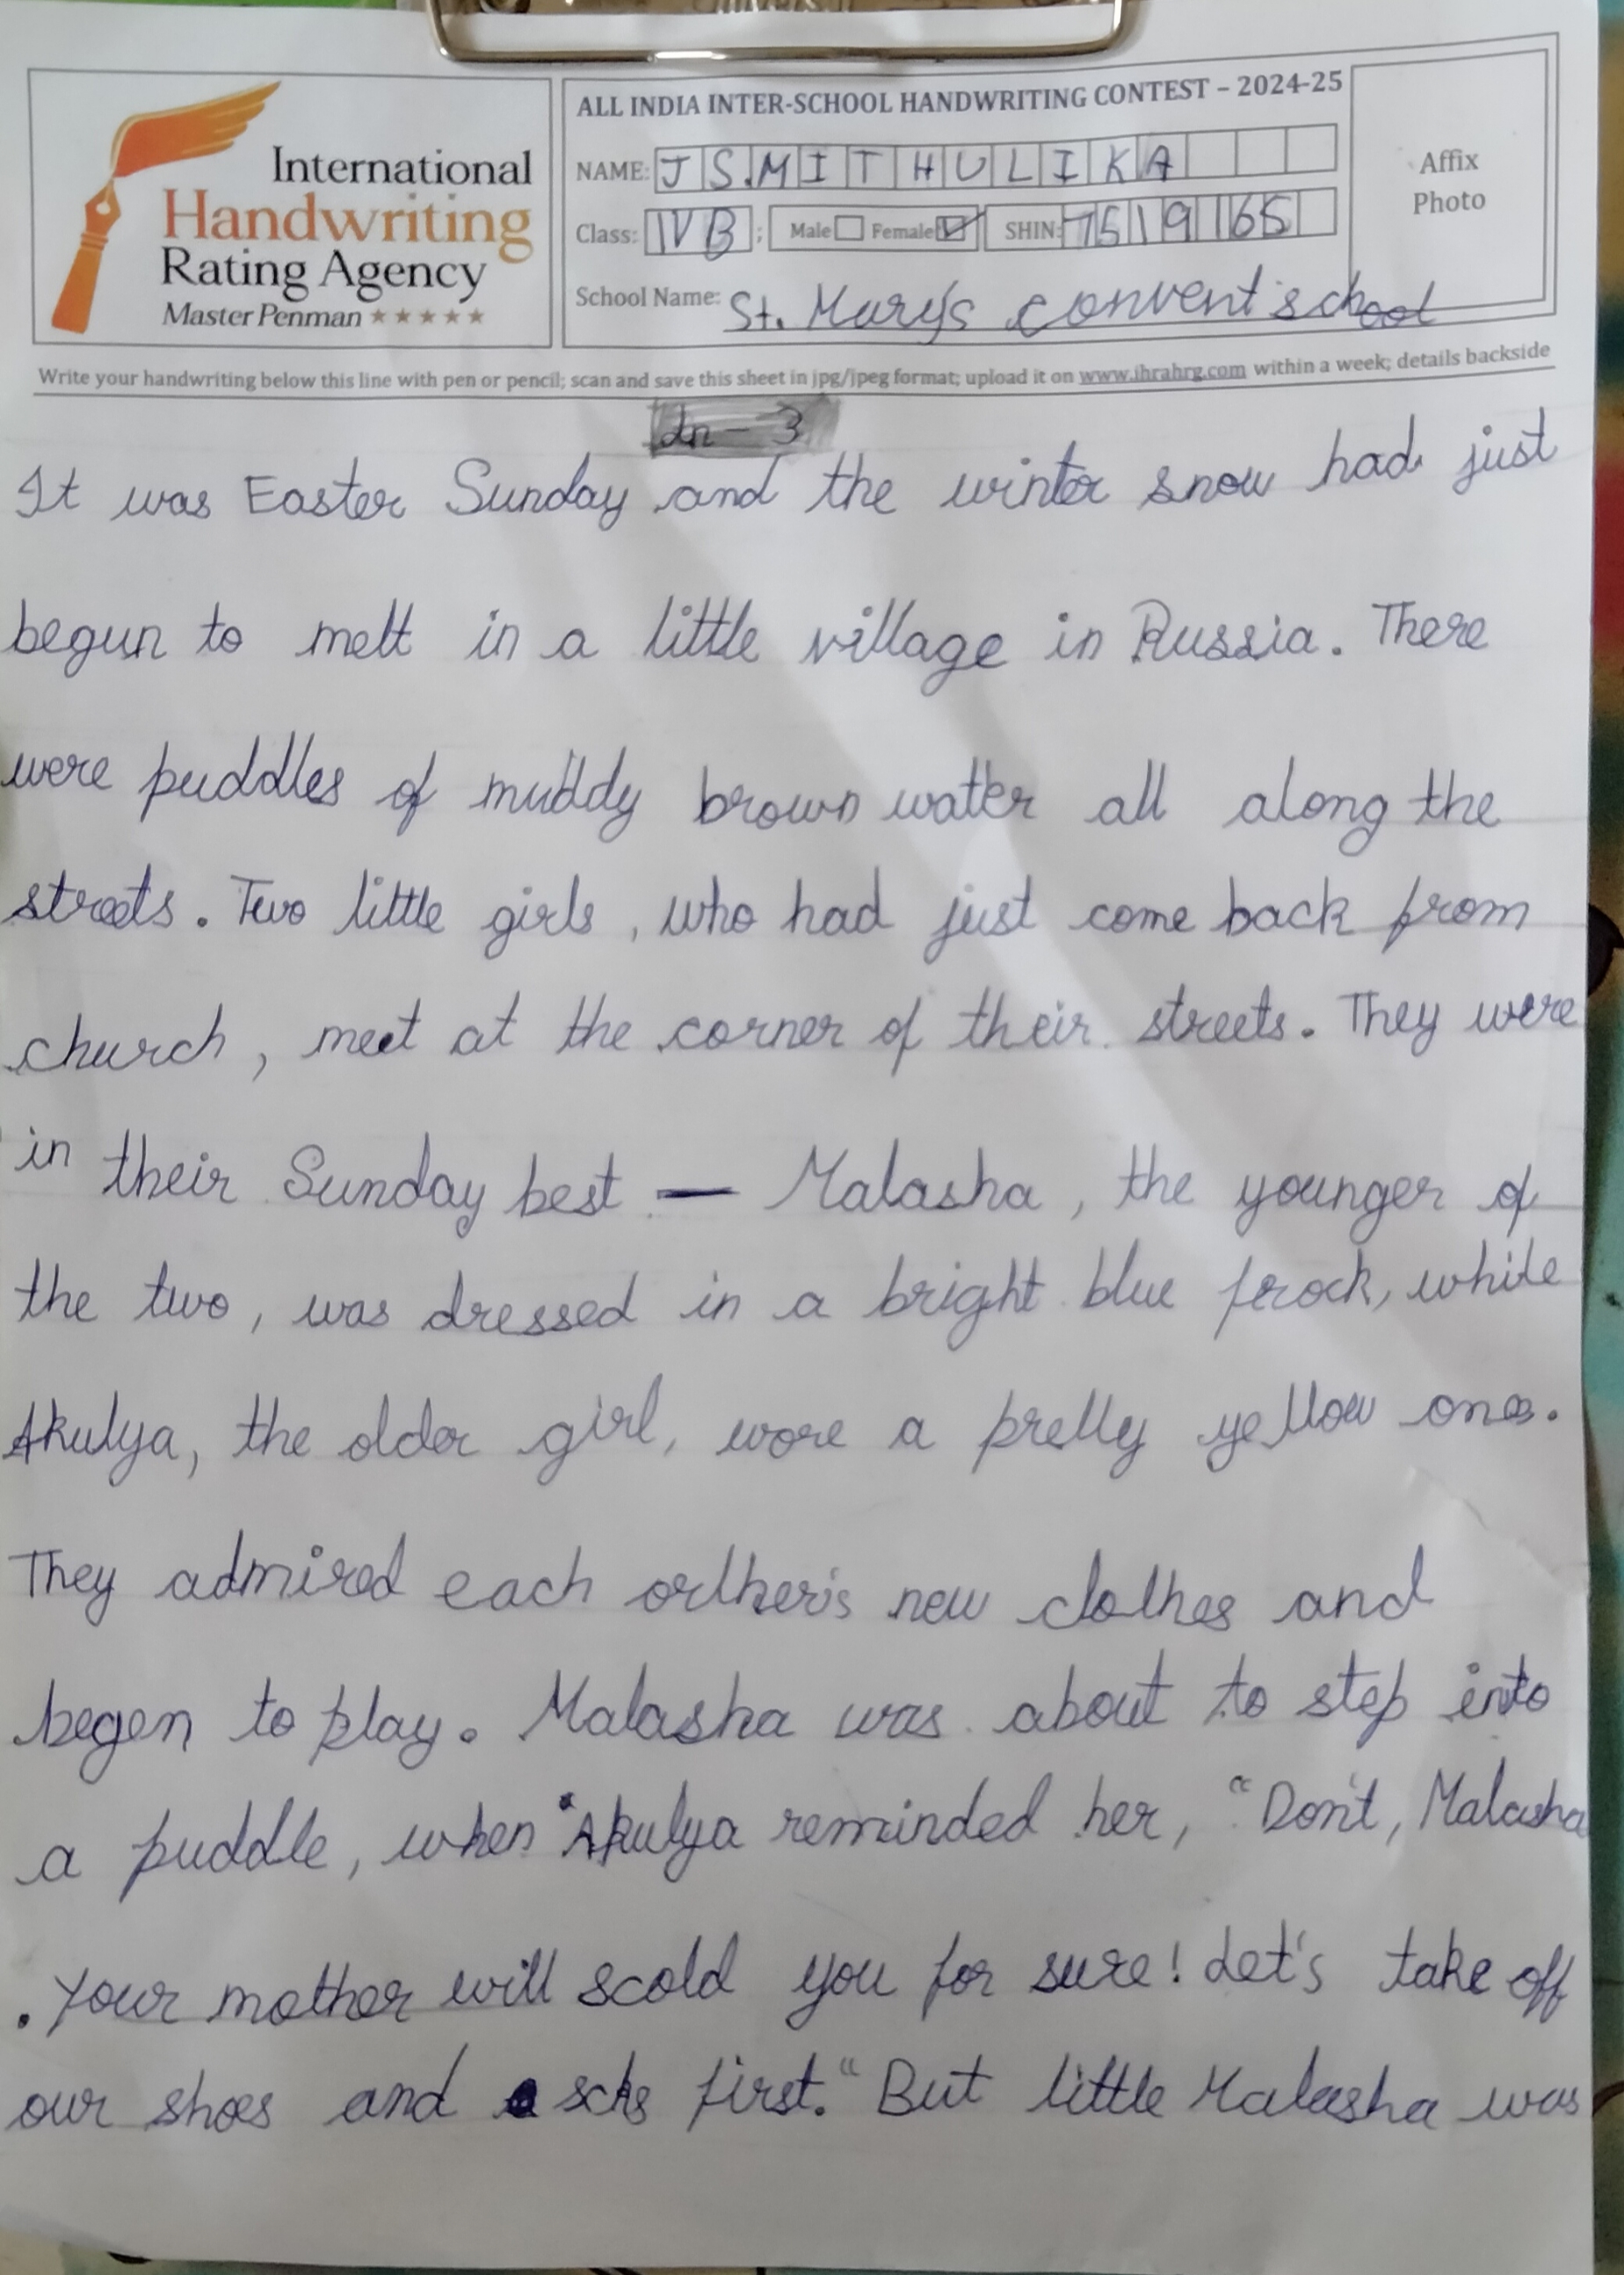 International
Handwriting
Rating Agency
Master Penman ★★★★★
ALL INDIA INTER-SCHOOL HANDWRITING CONTEST – 2024-25
NAME: J S.MITHULIKA
Class: IV B ; Male Female SHIN: 7519165
School Name: St. Mary's convent school
Affix
Photo
Write your handwriting below this line with pen or pencil; scan and save this sheet in jpg/jpeg format; upload it on www.ihrahrg.com within a week; details backside
Ln - 3
It was Easter Sunday and the winter snow had just
begun to melt in a little village in Russia. There
were puddles of muddy brown water all along the
streets. Two little girls, who had just come back from
church, meet at the corner of their streets. They were
in their Sunday best — Malasha, the younger of
the two, was dressed in a bright blue frock, while
Akulya, the older girl, wore a pretty yellow one.
They admired each orther's new clothes and
begen to play. Malasha was about to step into
a puddle, when Akulya reminded her, "Don't, Malasha
. Your mother will scold you for sure! Let's take off
our shoes and first." But little Malasha was